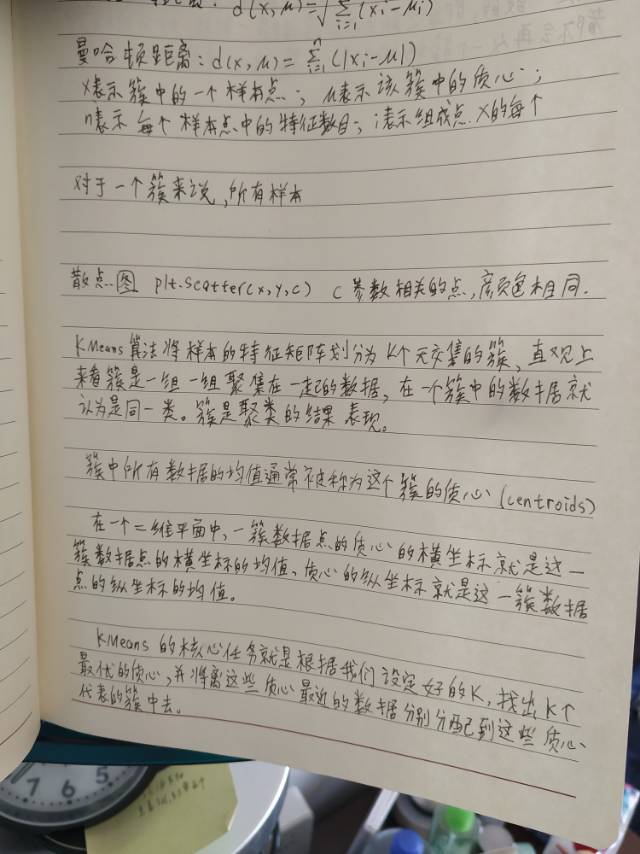 d(x,μ)=√∑(xi-μi)
曼哈顿距离：d(x,μ)=∑ⁿᵢ₌₁(|xi-μ|)
x表示簇中的一个样本点；μ表示该簇中的质心；
n表示每个样本点中的特征数目；i表示组成点x的每个
对于一个簇来说，所有样本
散点图 plt.scatter(x,y,c) c参数相关的点，颜色相同.
KMeans算法将样本的特征矩阵划分为K个无交集的簇，直观上
来看簇是一组一组聚集在一起的数据，在一个簇中的数据就
认为是同一类。簇是聚类的结果表现。
簇中所有数据的均值通常被称为这个簇的质心(centroids)
在一个二维平面中，一簇数据点的质心的横坐标就是这一
簇数据点的横坐标的均值、质心的纵坐标就是这一簇数据
点的纵坐标的均值。
KMeans的核心任务就是根据我们设定好的K，找出K个
最优的质心，并将离这些质心最近的数据分别分配到这些质心
代表的簇中去。
7 6 5